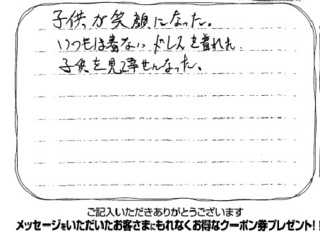 子供が笑顔になった。
いつもは着ないドレスを着れれ
子供を見て幸せなった。
ご記入いただきありがとうございます
メッセージをいただいたお客さまにもれなくお得なクーポン券プレゼント!!